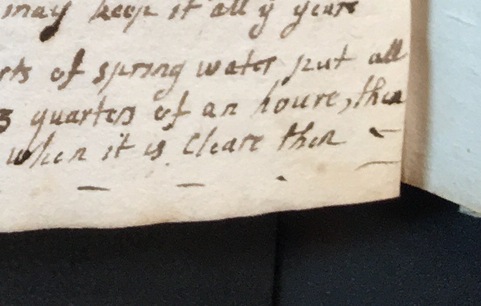 may keep it all ye yeare
rts of spring water put all
3 quarters of an houre, then
when it is Cleare then